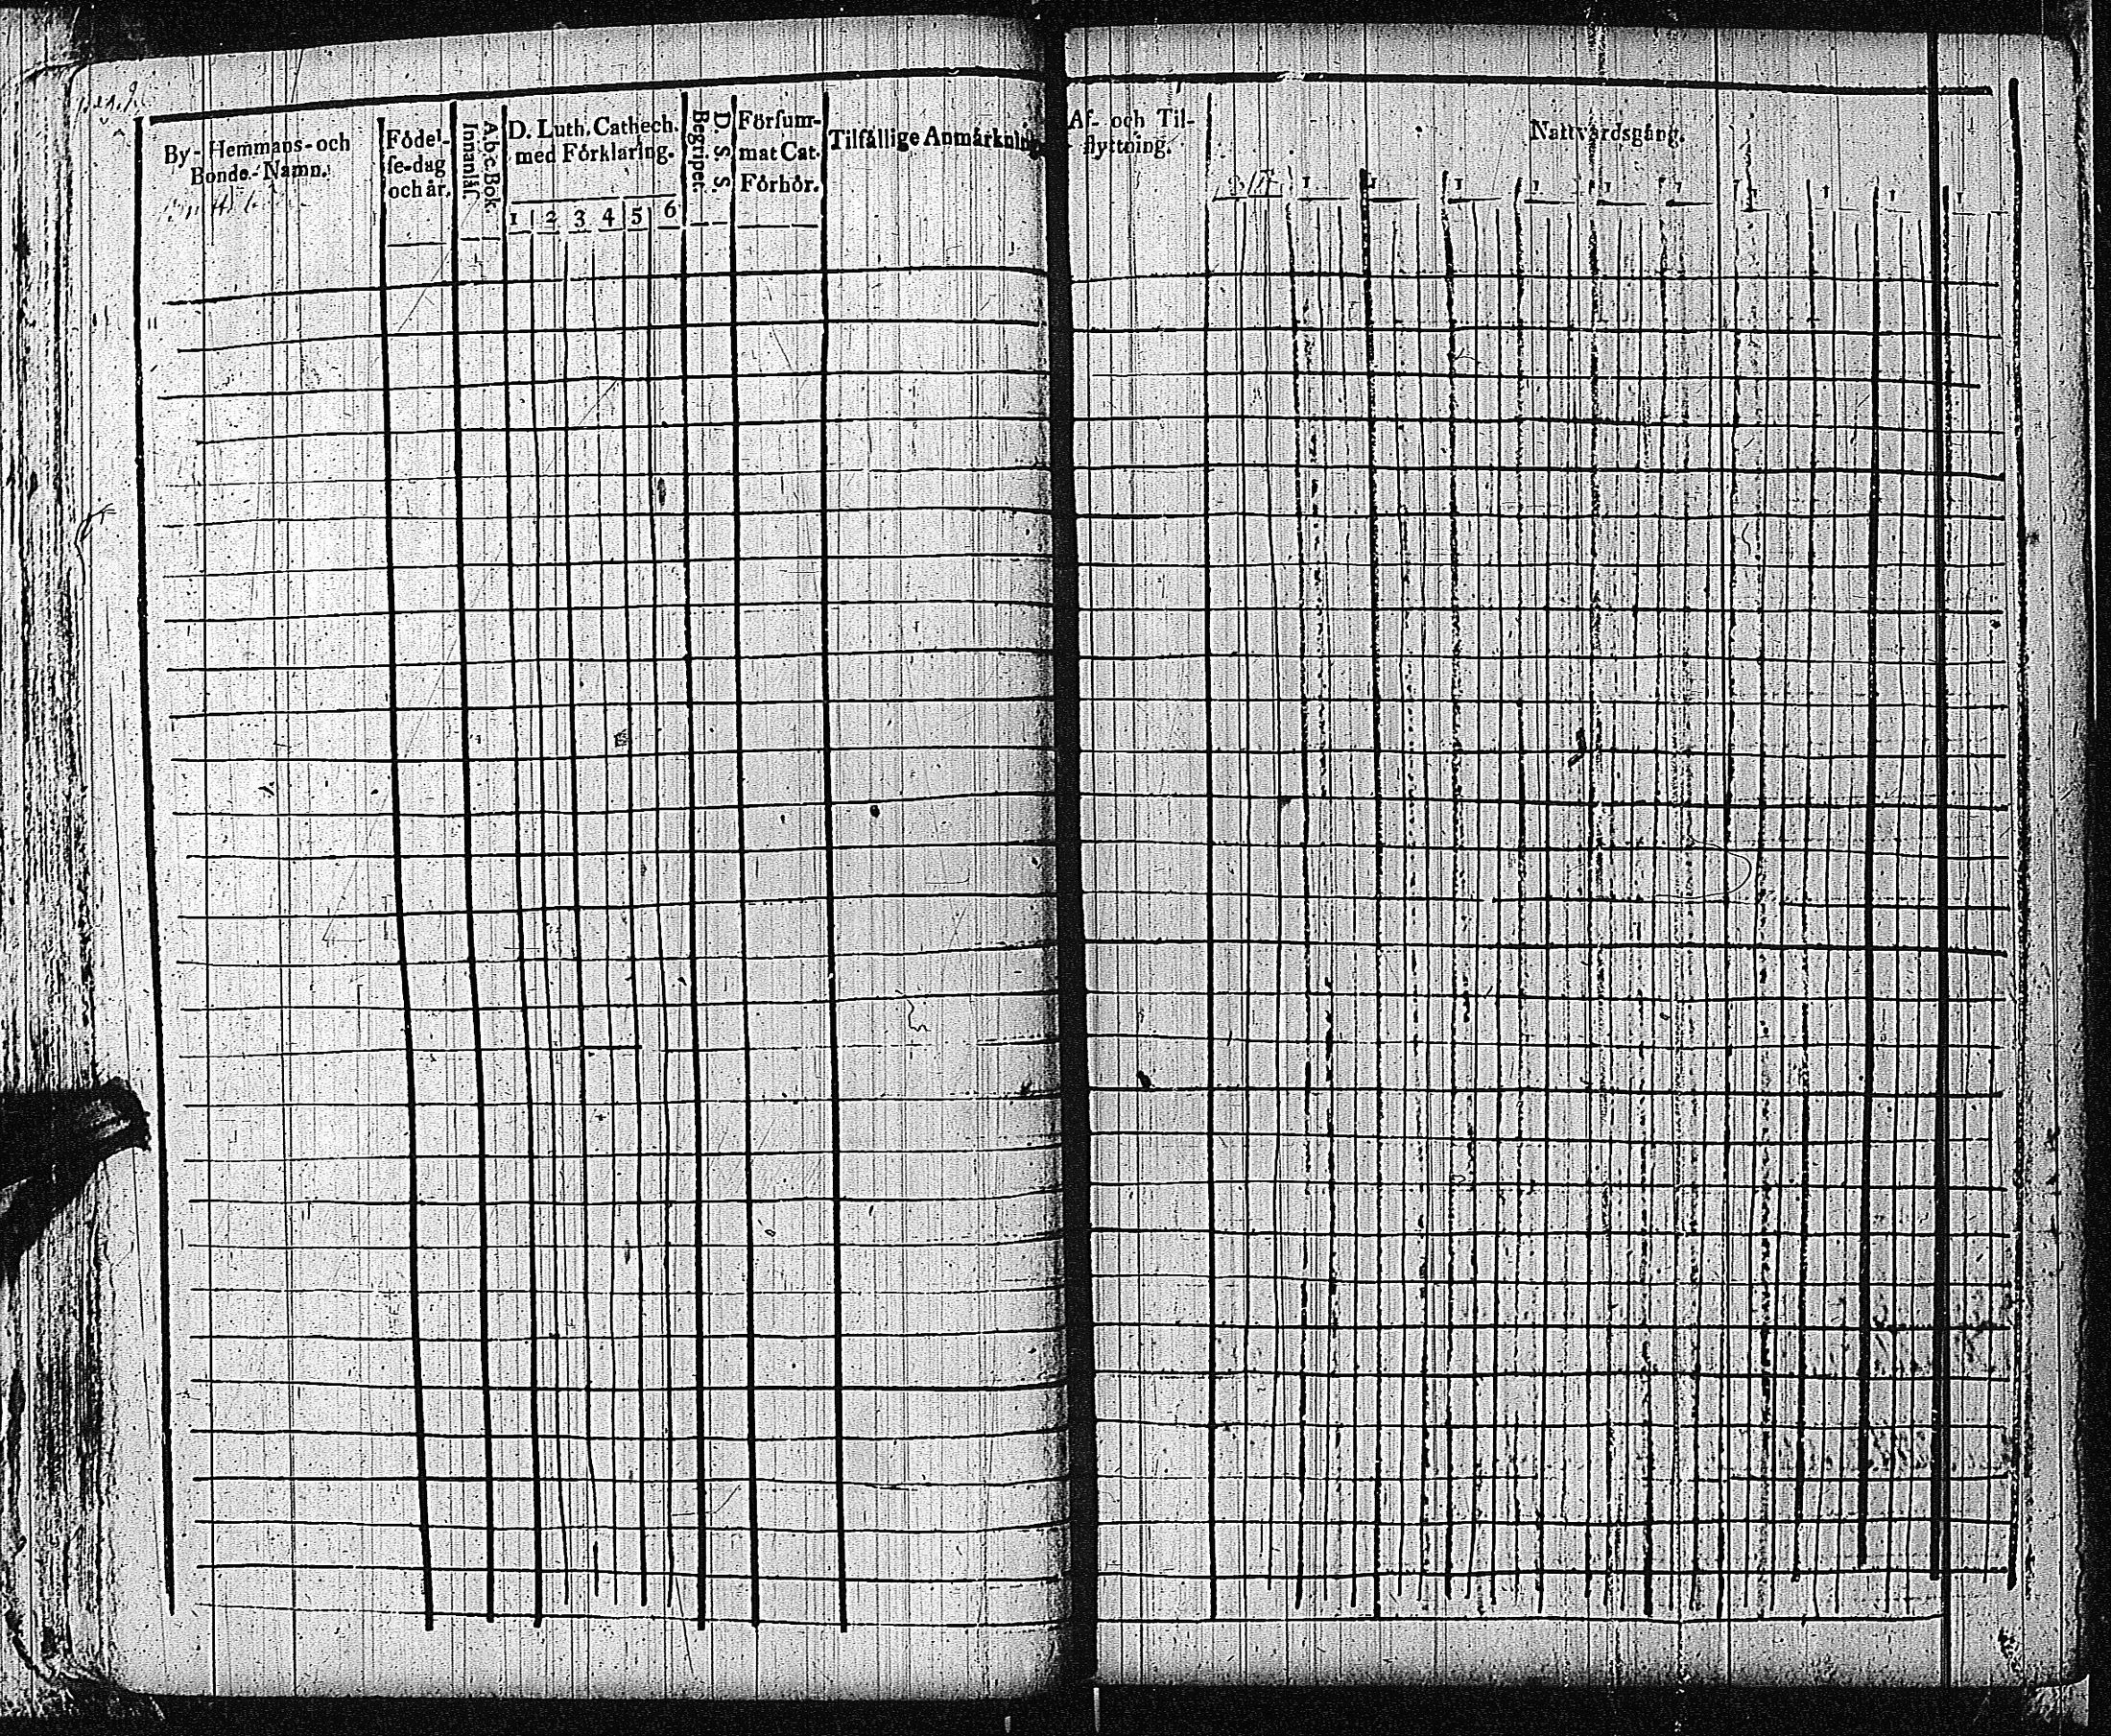 By- Hemmans- och
Bonde- Namn.
Födel-
se-dag
och år.
A b c Bok.
Innanläs.
D. Luth. Cathech.
med Förklaring.
1 2 3 4 5 6
D. S. S.
Begripet.
Försum-
mat Cat.
Förhör.
Tilfällige Anmärkning
Af- och Til-
flyttning.
Nattvardsgång.
1 1 1 1 1 1 1 1 1 1